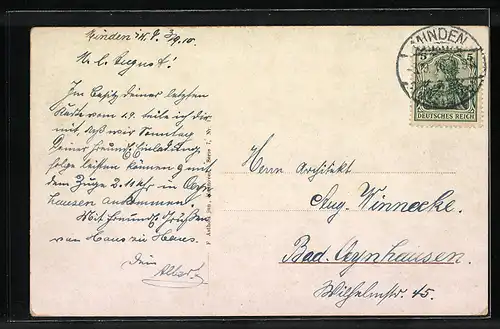 Minden i/W. d. 3/9.10.
M. l. August!
Im Besitz deiner letzten
Karte vom 1.9. teile ich dir
mit, daß wir Sonntag
Deiner freundl. Einladung
folge leisten können & mit
dem Zuge 2.11 Uhr in Oeyn-
hausen ankommen.
Mit freundl. Grüßen
von Haus zu Haus.
Dein
Albert
MINDEN
5 5
DEUTSCHES REICH
Herrn Architekt
Aug. Winnecke.
Bad. Oeynhausen.
Wilhelmstr. 45.